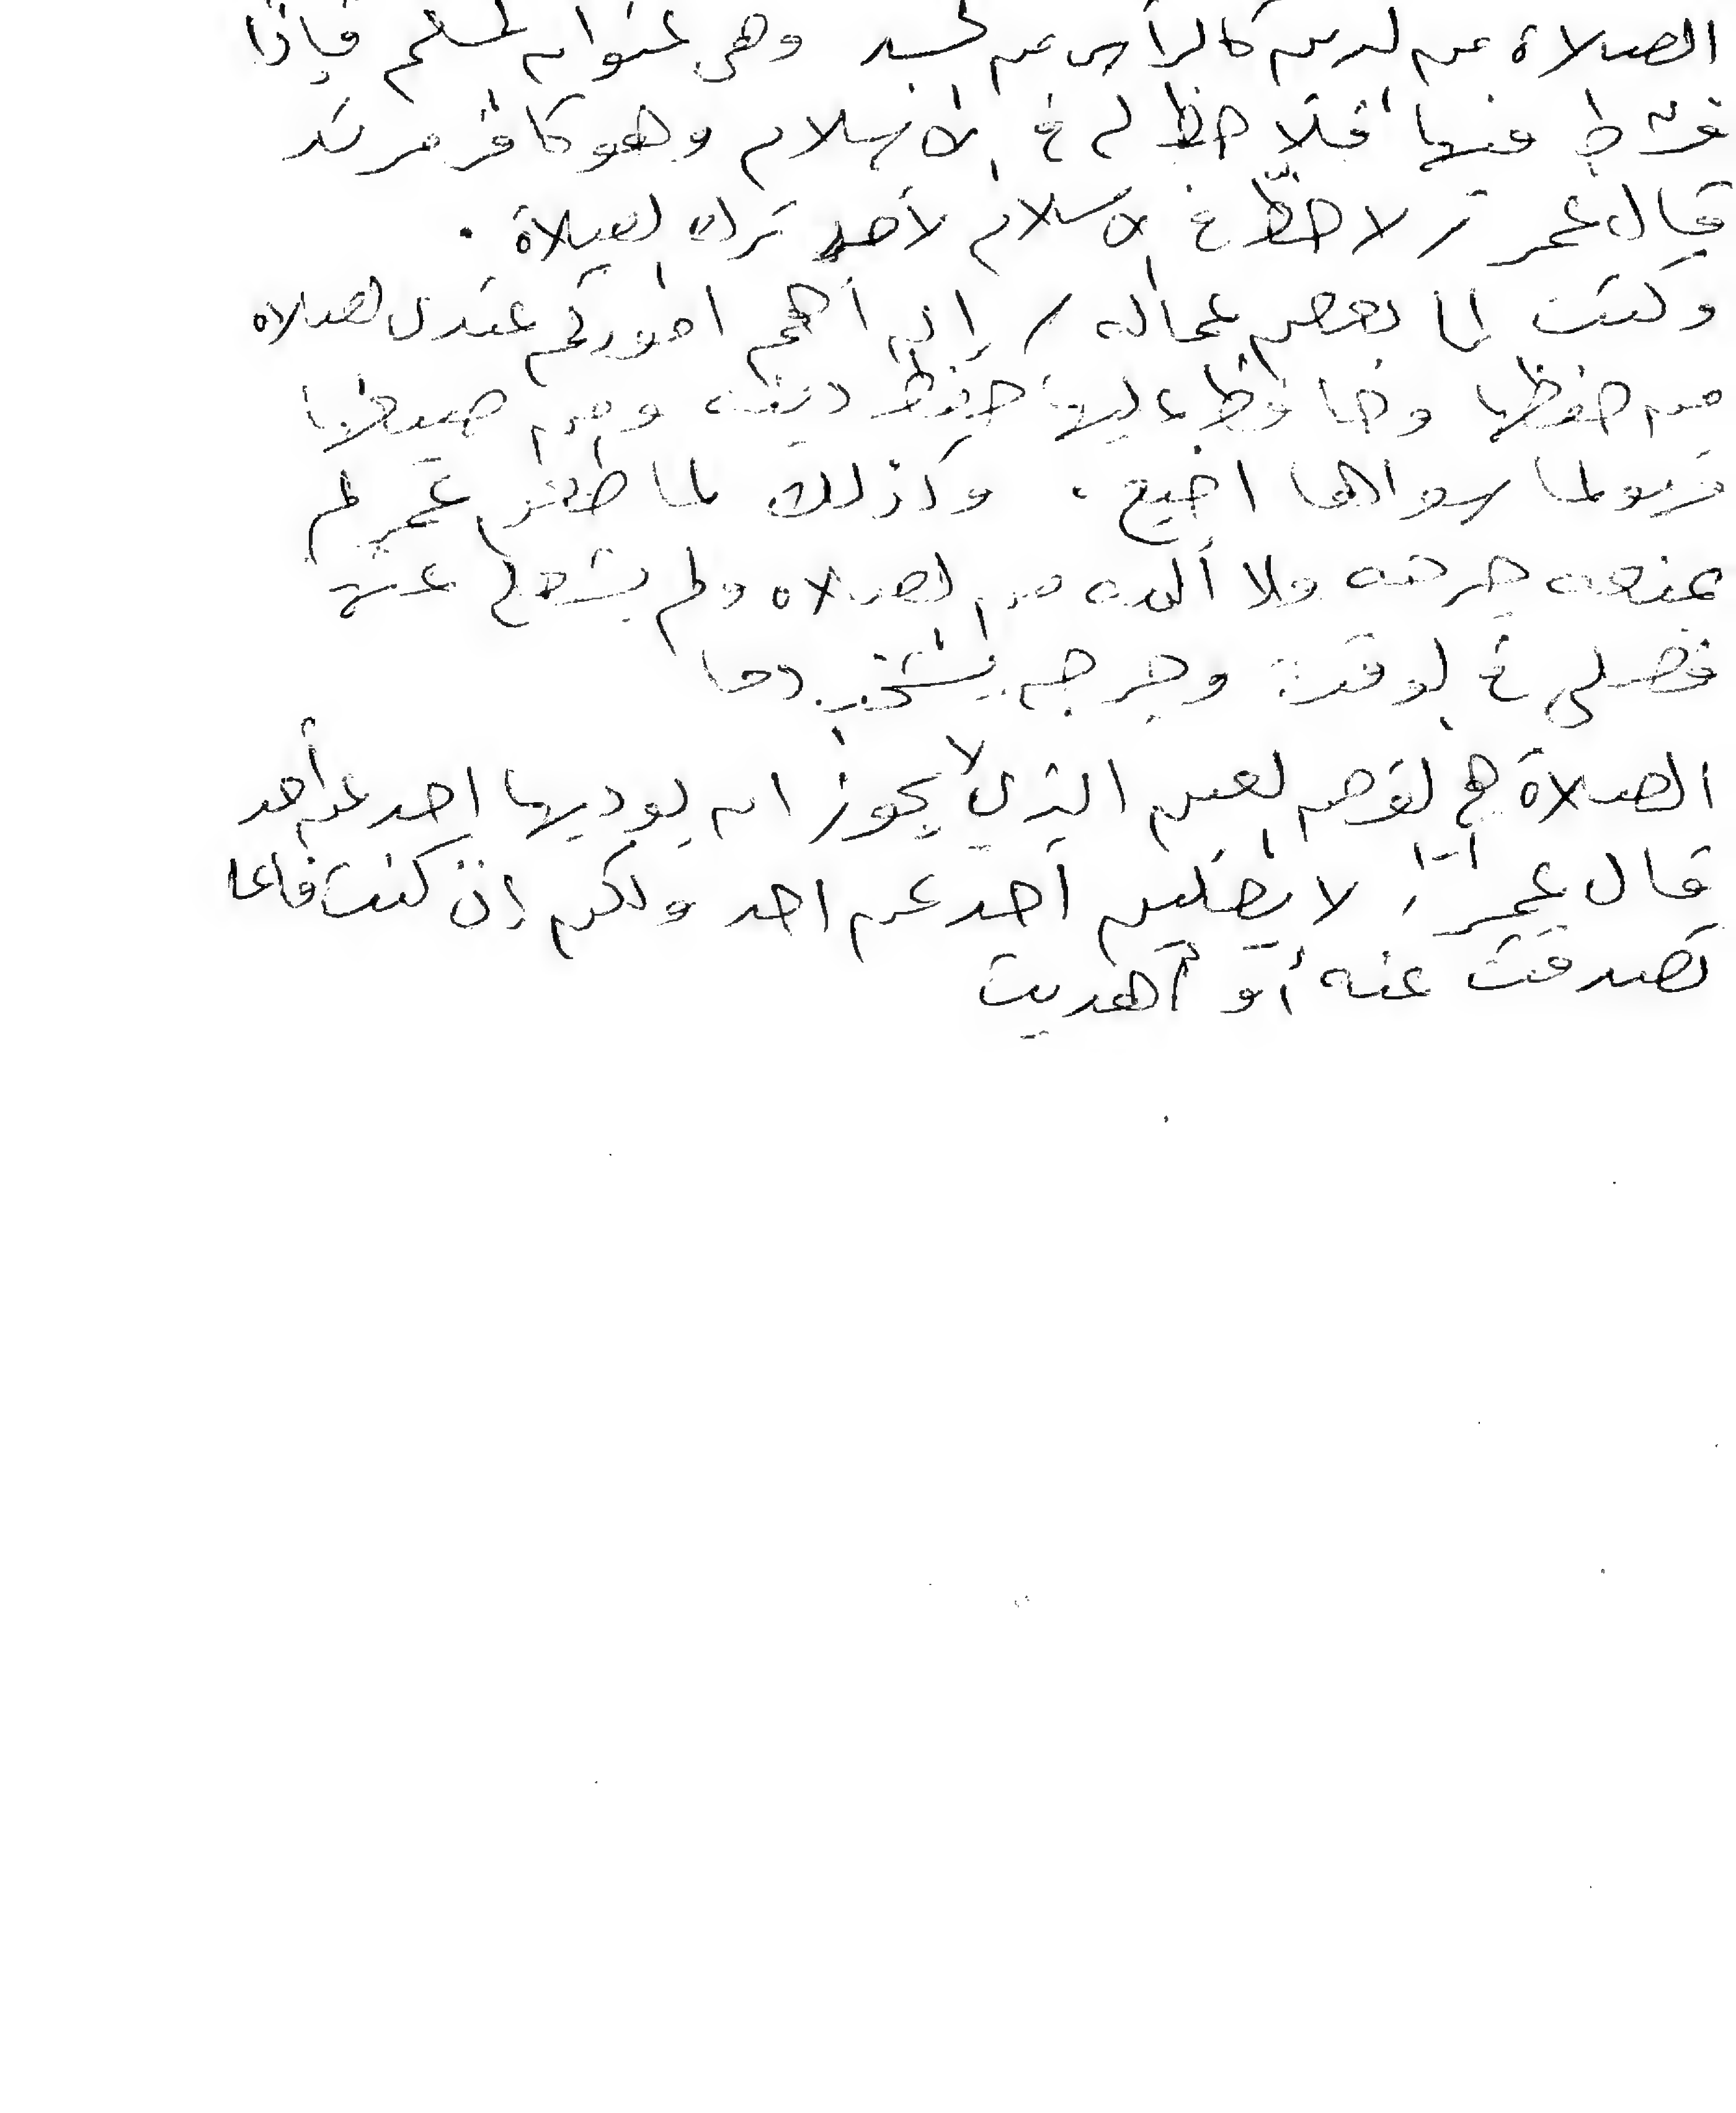 الصلاة من الدين كالرأس من الجسد وهي عنوان المسلم فإذا
فرط فيها فلا حظ له في الاسلام وهو كافر مرتد
قال عمر / لا حظّ في الاسلام لأحد ترك الصلاة .
وكتب الى بعض عماله / إن أهم اموركم عندي الصلاه
من حفظها وحافظ عليها حفظ دينه ومن ضيعها
فهو لما سواها اضيع . وكذلك لما طعن عمر لم
يمنعه جرحه ولا ألمه من الصلاه ولم يشغله عنها
فصلى في الوقت وجرحه يشخب دما
الصلاة هي الفرض العين الذي لا يجوز ان يوديها احد عن أحد
قال عمر / لا يصلين أحد عن احد ولكن إن كنت فاعلا
تصدقت عنه أو أهديت